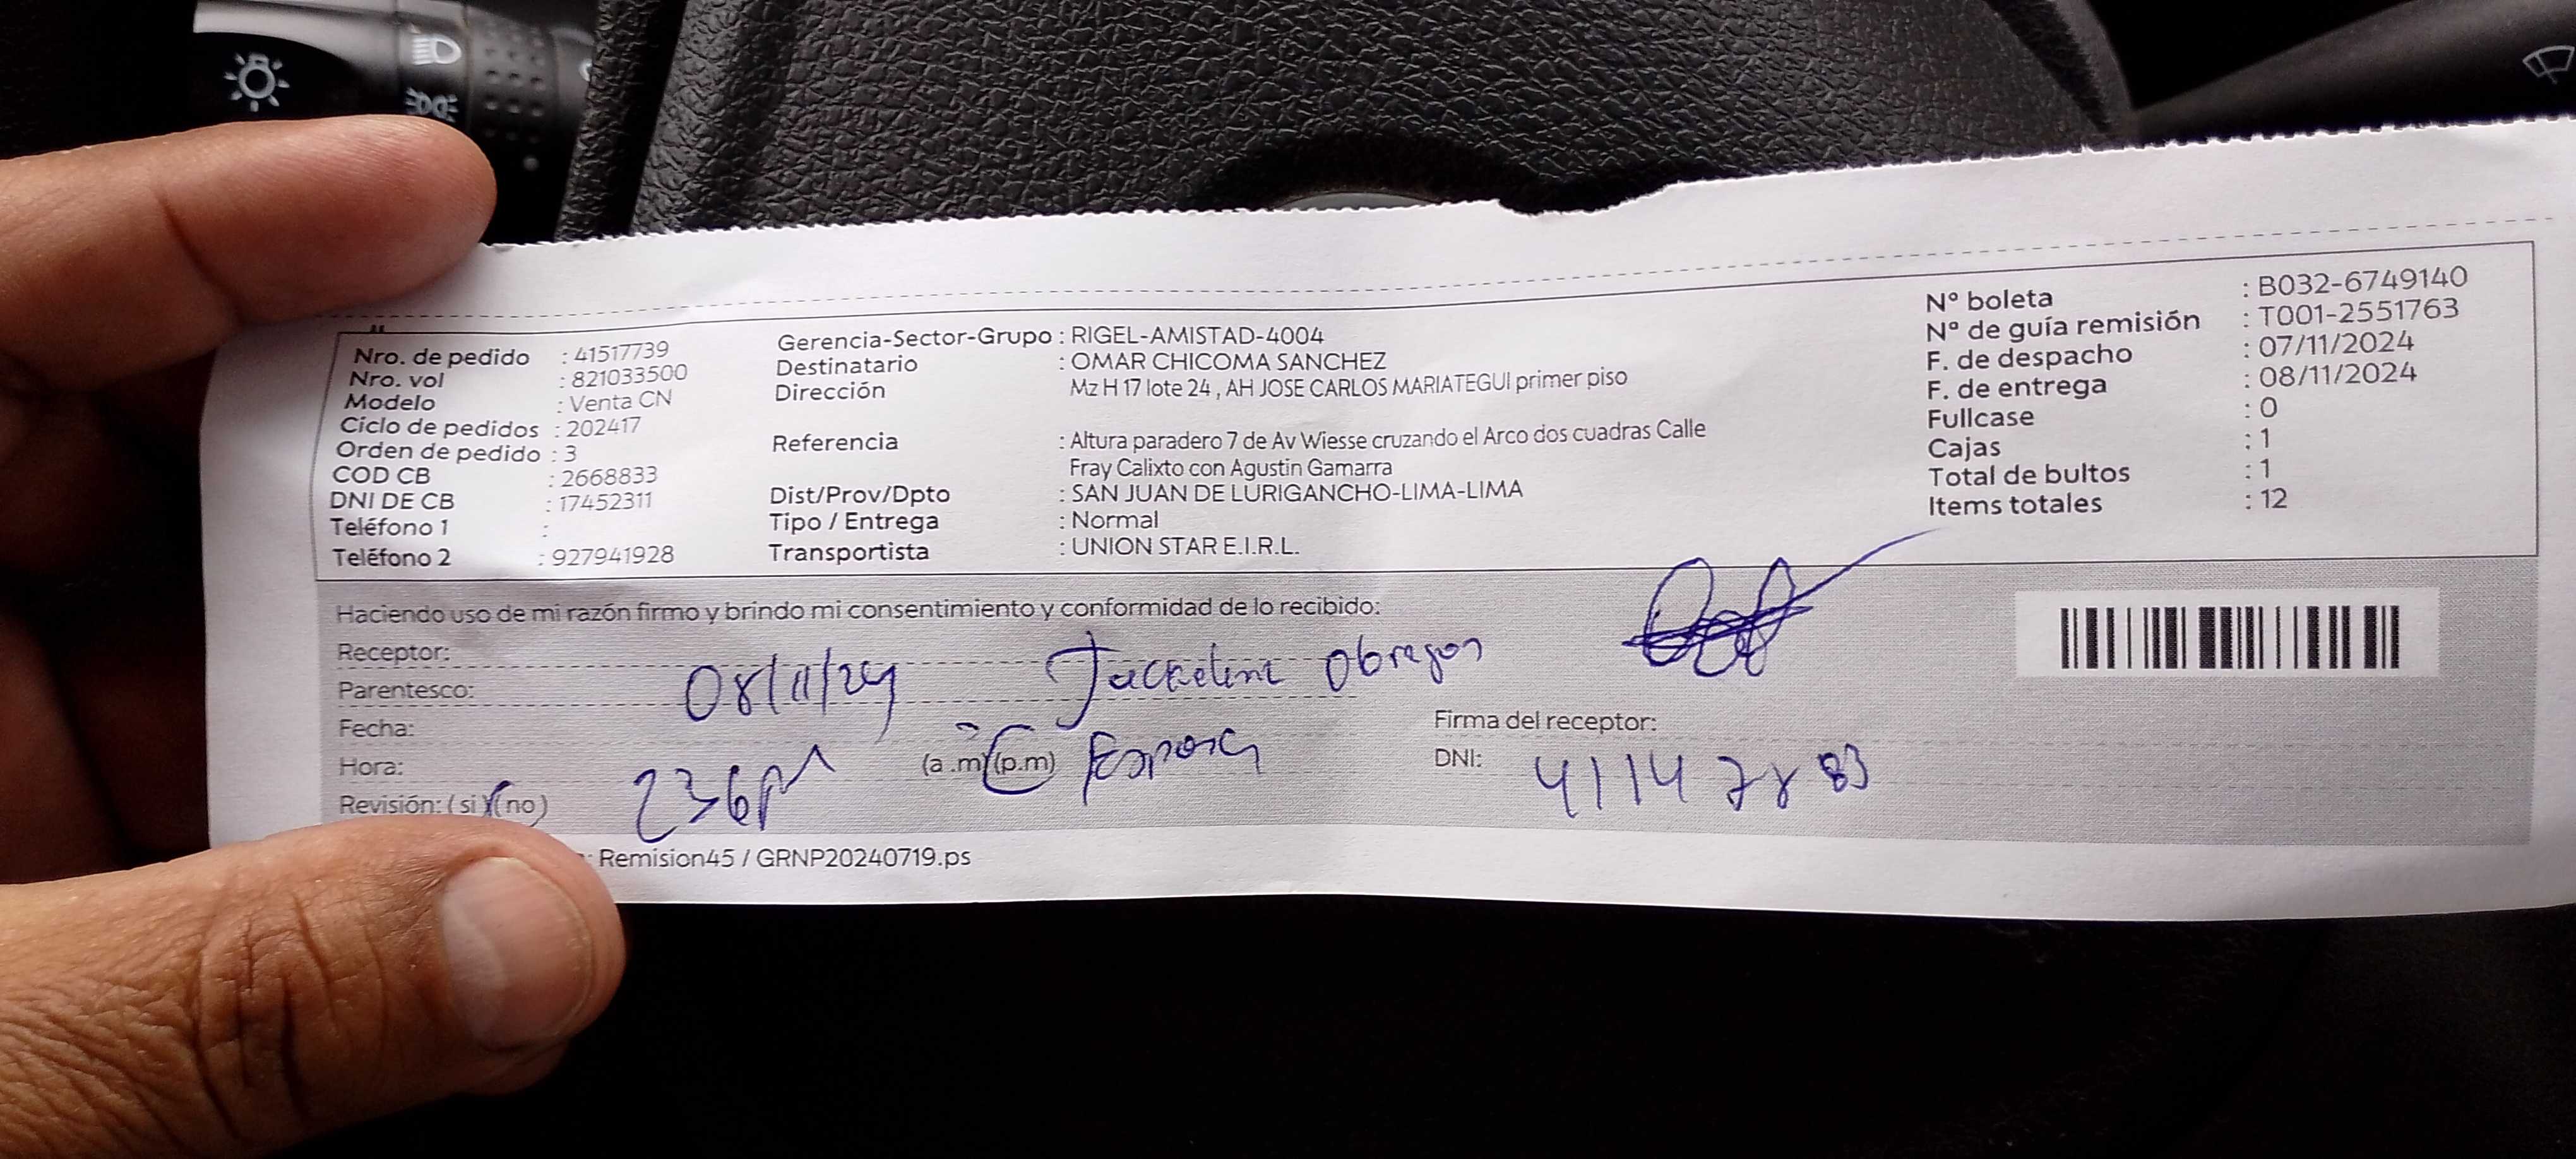 Nro. de pedido : 41517739
Nro. vol : 821033500
Modelo : Venta CN
Ciclo de pedidos : 202417
Orden de pedido : 3
COD CB : 2668833
DNI DE CB : 17452311
Teléfono 1 :
Teléfono 2 : 927941928
Gerencia-Sector-Grupo : RIGEL-AMISTAD-4004
Destinatario : OMAR CHICOMA SANCHEZ
Dirección Mz H 17 lote 24 , AH JOSE CARLOS MARIATEGUI primer piso
Referencia : Altura paradero 7 de Av Wiesse cruzando el Arco dos cuadras Calle
Fray Calixto con Agustin Gamarra
Dist/Prov/Dpto : SAN JUAN DE LURIGANCHO-LIMA-LIMA
Tipo / Entrega : Normal
Transportista : UNION STAR E.I.R.L.
Nº boleta : B032-6749140
Nº de guía remisión : T001-2551763
F. de despacho : 07/11/2024
F. de entrega : 08/11/2024
Fullcase : 0
Cajas : 1
Total de bultos : 1
Items totales : 12
Haciendo uso de mi razón firmo y brindo mi consentimiento y conformidad de lo recibido:
Receptor: Jackeline Obregon
Parentesco: 08/11/24
Fecha: Esposa
Firma del receptor:
Hora: 236pm (a .m)(p.m)
DNI: 4114
Revisión: ( si )(no)
: Remision45 / GRNP20240719.ps